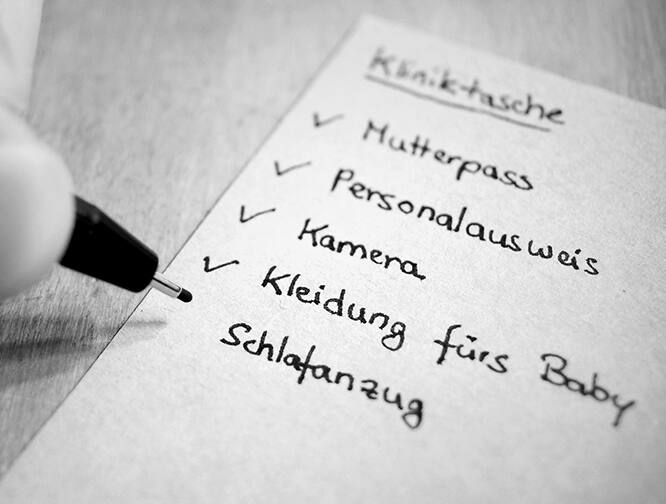 Klinik-tasche
✓ Mutterpass
✓ Personalausweis
✓ Kamera
✓ Kleidung fürs Baby
Schlafanzug